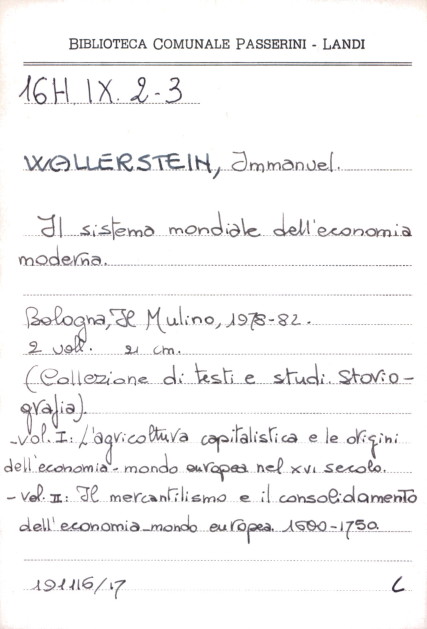 BIBLIOTECA COMUNALE PASSERINI - LANDI
16H IX. 2-3
WALLERSTEIN, Immanuel.
Il sistema mondiale dell'economia
moderna.
Bologna, Il Mulino, 1978-82.
2 voll. 21 cm.
(Collezione di testi e studi. Storio-
grafia).
-Vol. I: L'agricoltura capitalistica e le origini
dell'economia-mondo europea nel XVI secolo.
-Vol. II: Il mercantilismo e il consolidamento
dell'economia-mondo europea. 1600-1750
191116/17 L